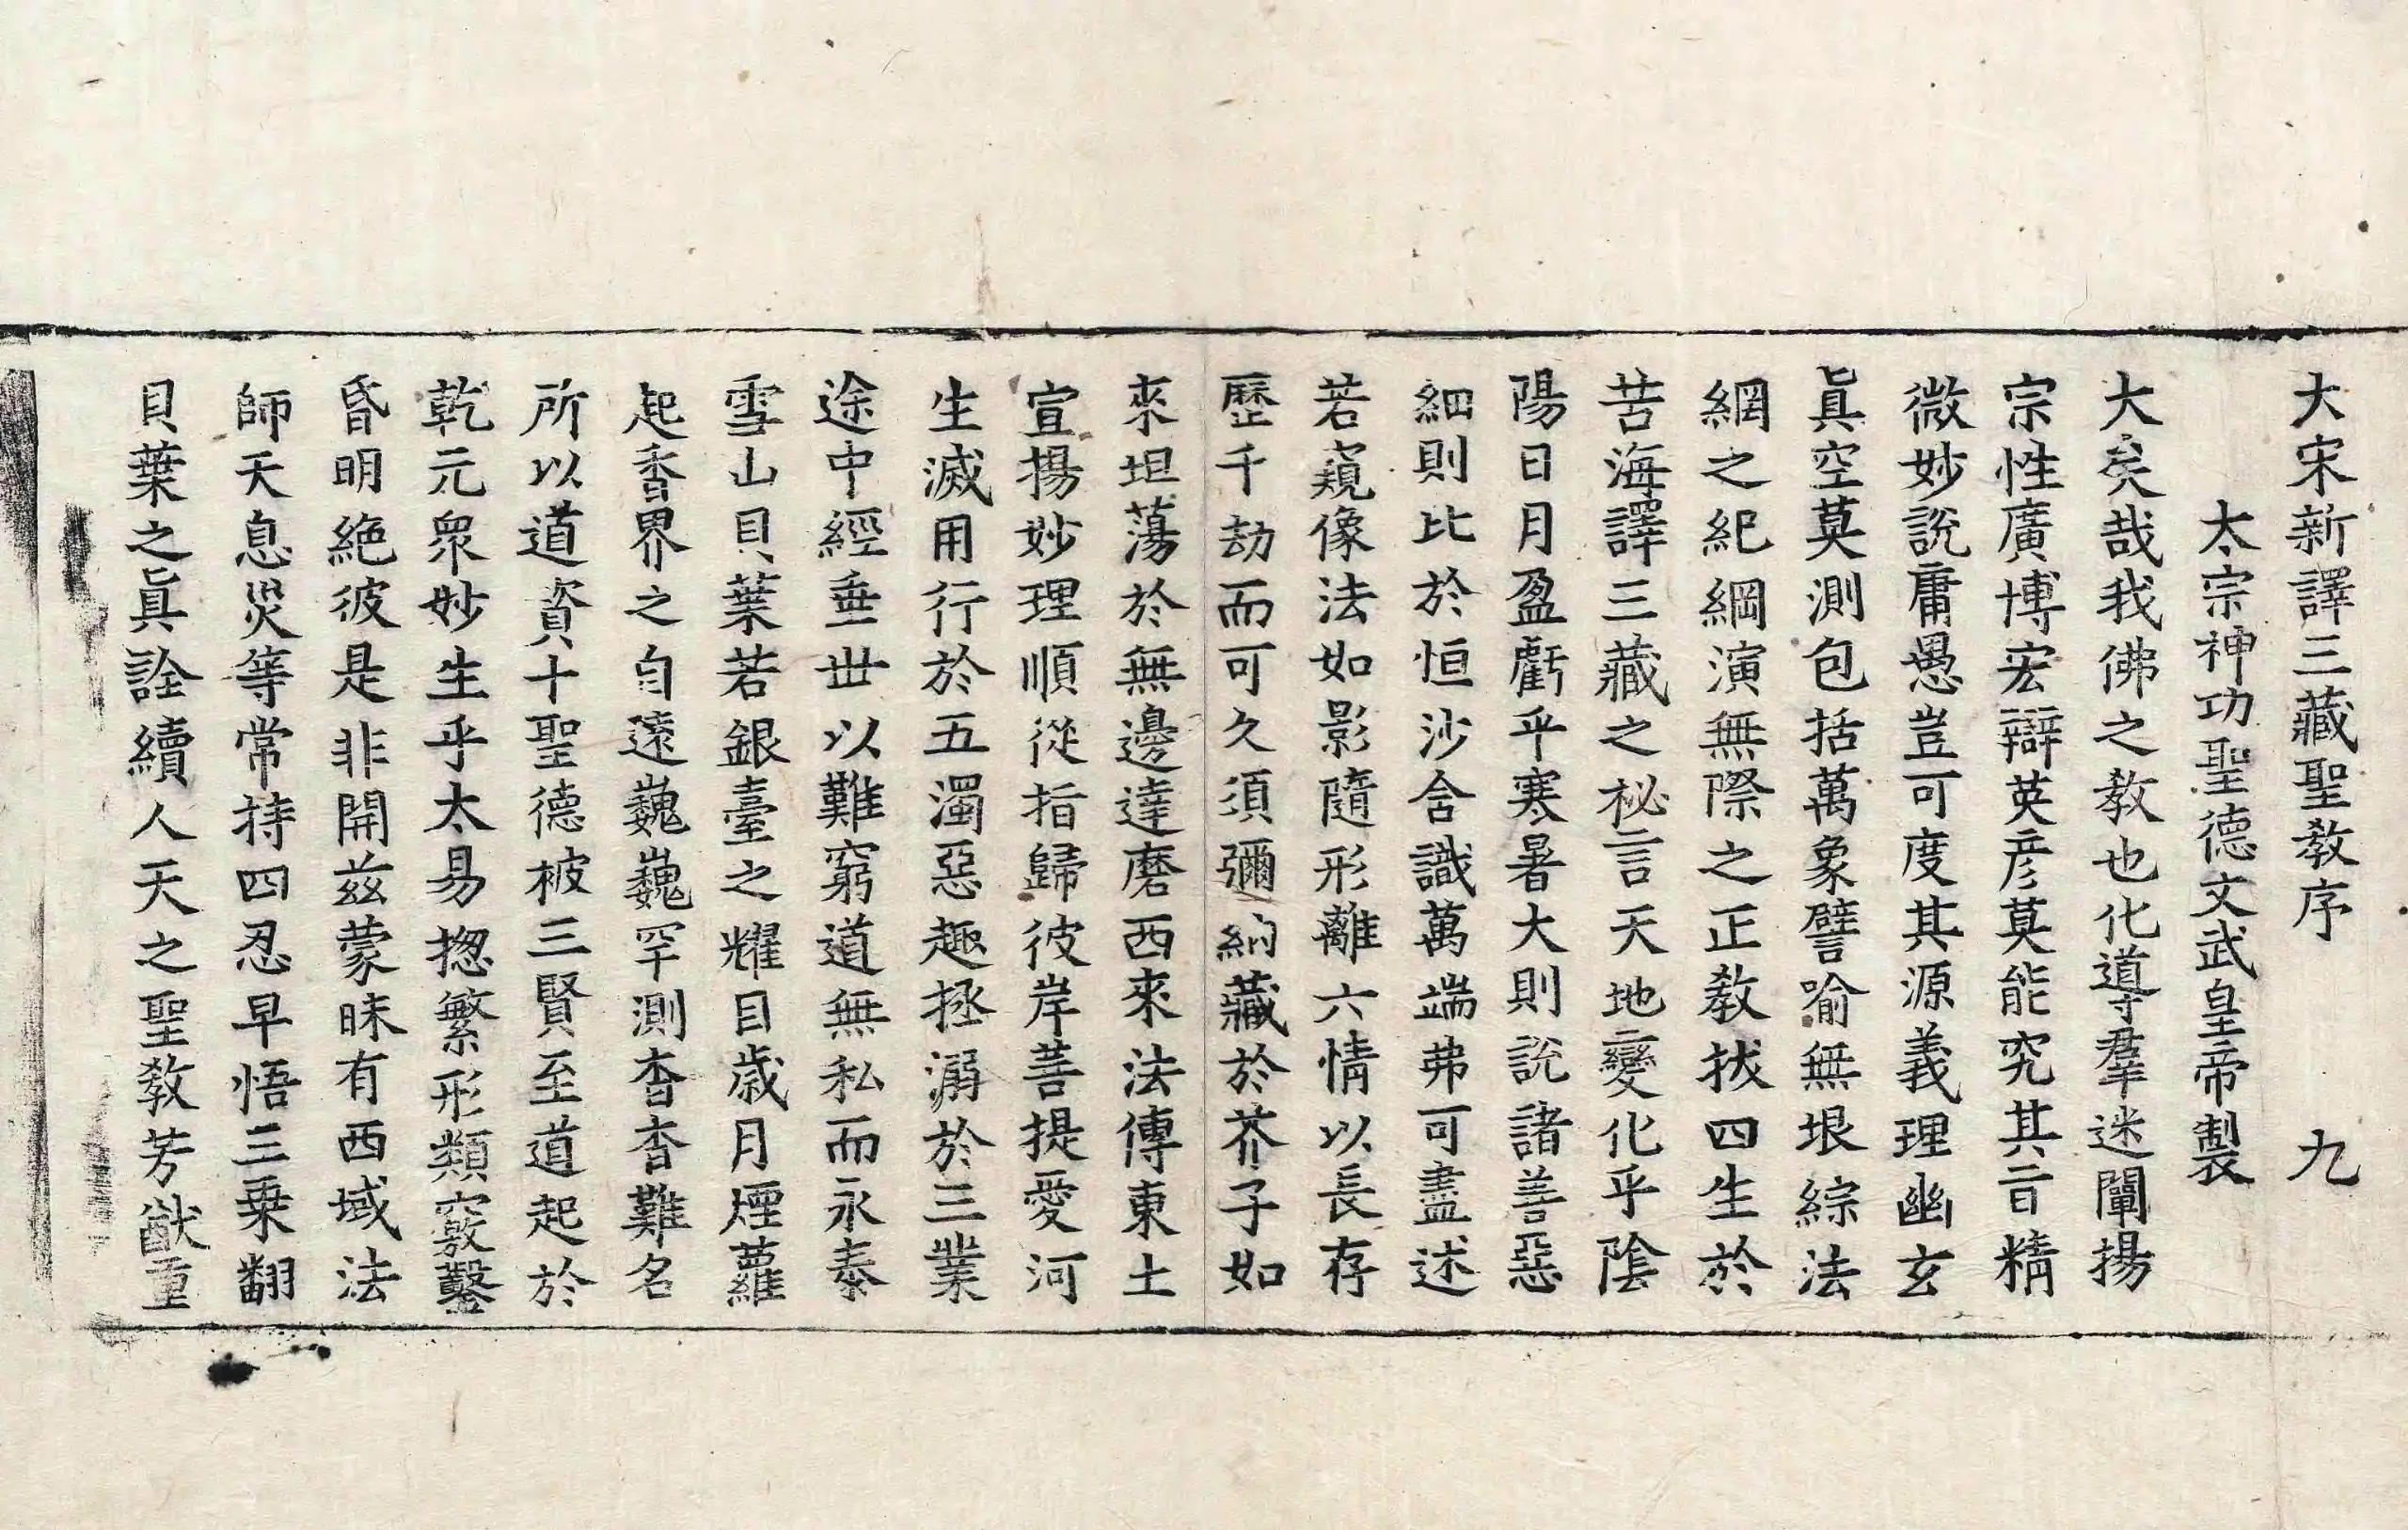 大宋新譯三藏聖教序 九
太宗神功聖德文武皇帝製
大矣哉我佛之教也化導羣迷闡揚
宗性廣博宏辯英彦莫能究其旨精
微妙說庸愚豈可度其源義理幽玄
眞空莫測包括萬象譬喻無垠綜法
網之紀綱演無際之正教拔四生於
苦海譯三藏之秘言天地變化乎陰
陽日月盈虧乎寒暑大則說諸善惡
細則比於恒沙含識萬端弗可盡述
若窺像法如影隨形離六情以長存
歷千劫而可久須彌納藏於芥子如
來坦蕩於無邊達磨西來法傳東土
宣揚妙理順從指歸彼岸菩提愛河
生滅用行於五濁惡趣拯溺於三業
途中經垂世以難窮道無私而永泰
雪山貝葉若銀臺之耀目歲月煙蘿
起香界之自遠巍巍罕測杳杳難名
所以道資十聖德被三賢至道起於
乾元衆妙生乎太易揔繁形類竅鑿
昏明絶彼是非開茲蒙昧有西域法
師天息災等常持四忍早悟三乗翻
貝葉之眞詮續人天之聖教芳猷重